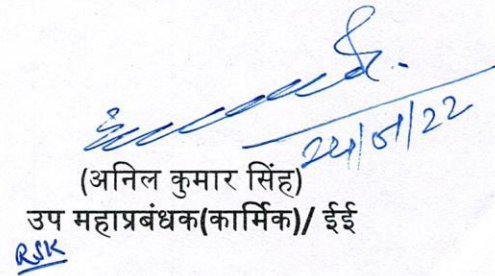 (अनिल कुमार सिंह)
उप महाप्रबंधक(कार्मिक)/ ईई
RSK